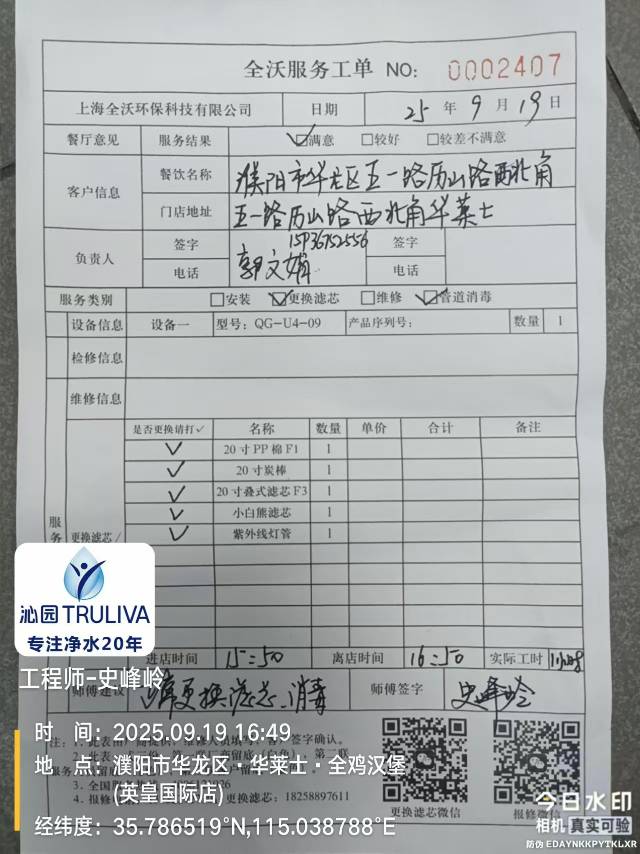 全沃服务工单 NO: 0002407
上海全沃环保科技有限公司 日期 25 年 9 月 19 日
餐厅意见 服务结果 ☑满意 □较好 □较差不满意
客户信息 餐饮名称 濮阳市华龙区五一路历山路西北角
门店地址 五一路历山路西北角华莱士
负责人 签字 郭文娟 15936752556 签字
电话 电话
服务类别 □安装 ☑更换滤芯 □维修 ☑管道消毒
设备信息 设备一 型号: QG-U4-09 产品序列号: 数量 1
检修信息
维修信息
是否更换请打✓ 名称 数量 单价 合计 备注
✓ 20寸PP棉F1 1
✓ 20寸炭棒 1
✓ 20寸叠式滤芯F3 1
✓ 小白熊滤芯 1
✓ 紫外线灯管 1
服务
更换滤芯/
进店时间 15:50 离店时间 16:50 实际工时 1小时
师傅建议 更换滤芯、消毒 师傅签字 史峰岭
更换滤芯微信 报修微信
更换滤芯: 18258897611
沁园TRULIVA
专注净水20年
工程师-史峰岭
时 间: 2025.09.19 16:49
地 点: 濮阳市华龙区·华莱士·全鸡汉堡
(英皇国际店)
经纬度: 35.786519°N,115.038788°E
今日水印
相机 真实可验
防伪 EDAYNKKPYTKLXR